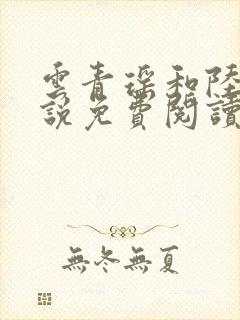 雲青瑤和陸
說免費閱讀
無冬無夏